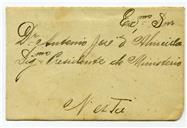 Exmo Snr
Dr Antonio José d'Almeida
Digmo Presidente do Ministerio
Nesta